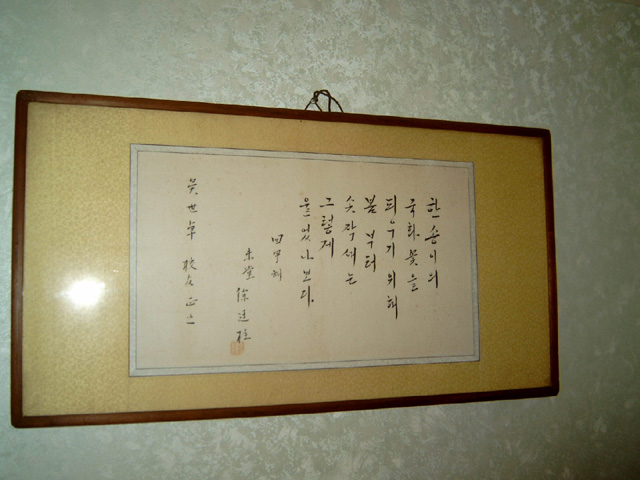 한 송이의
국화꽃을
피우기 위해
봄 부터
솟작새는
그렇게
울었나보다.
回甲
未堂 徐廷柱
吳世卓 正之